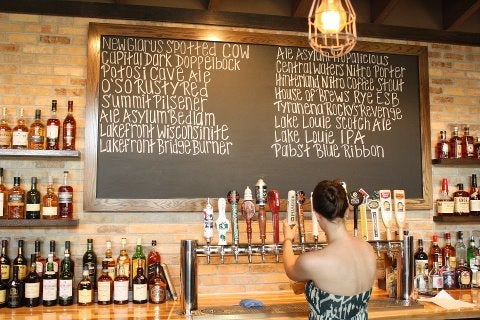 New Glarus Spotted Cow
Capital Dark Doppelbock
Potosi Cave Ale
O'so Rusty Red
Summit Pilsener
Ale Asylum Bedlam
Lakefront Wisconsinite
Lakefront Bridge Burner
Ale Asylum Hopalicious
Central Waters Nitro Porter
Hinterland Nitro Coffee Stout
House of Brews Rye ESB
Tyranena Rocky's Revenge
Lake Louie Scotch Ale
Lake Louie IPA
Pabst Blue Ribbon